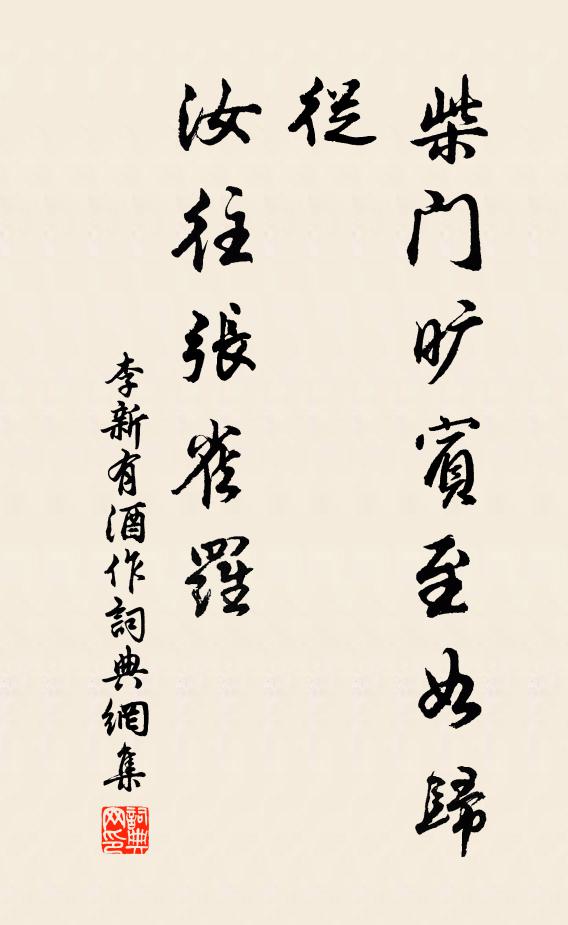 柴门旷賓至如歸
從
汝往張雀羅
李新有酒作詞典網集
詞典网印